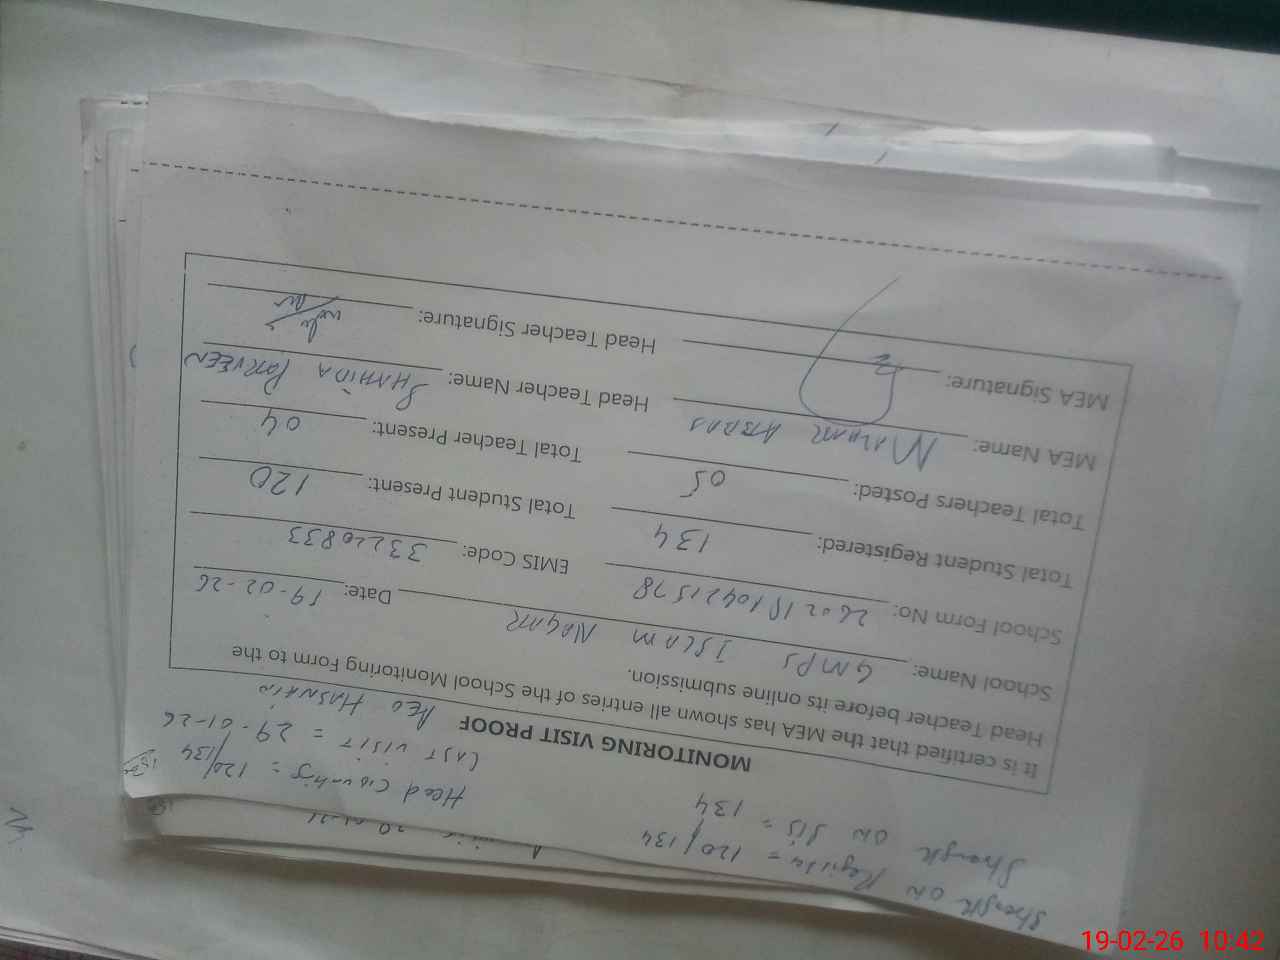 Strength on Register = 120/134
Strength on SIS = 134
Head Counting = 120/134
Last visit = 29-01-26
AEO HASNAIN
MONITORING VISIT PROOF
It is certified that the MEA has shown all entries of the School Monitoring Form to the
Head Teacher before its online submission.
School Name: GMPS ISLAM NAGAR Date: 19-02-26
School Form No: EMIS Code: 33220833
Total Student Registered: 134 Total Student Present: 120
Total Teachers Posted: 05 Total Teacher Present: 04
MEA Name: ABBAS Head Teacher Name: SHAHIDA PARVEEN
MEA Signature: Head Teacher Signature:
19-02-26 10:42